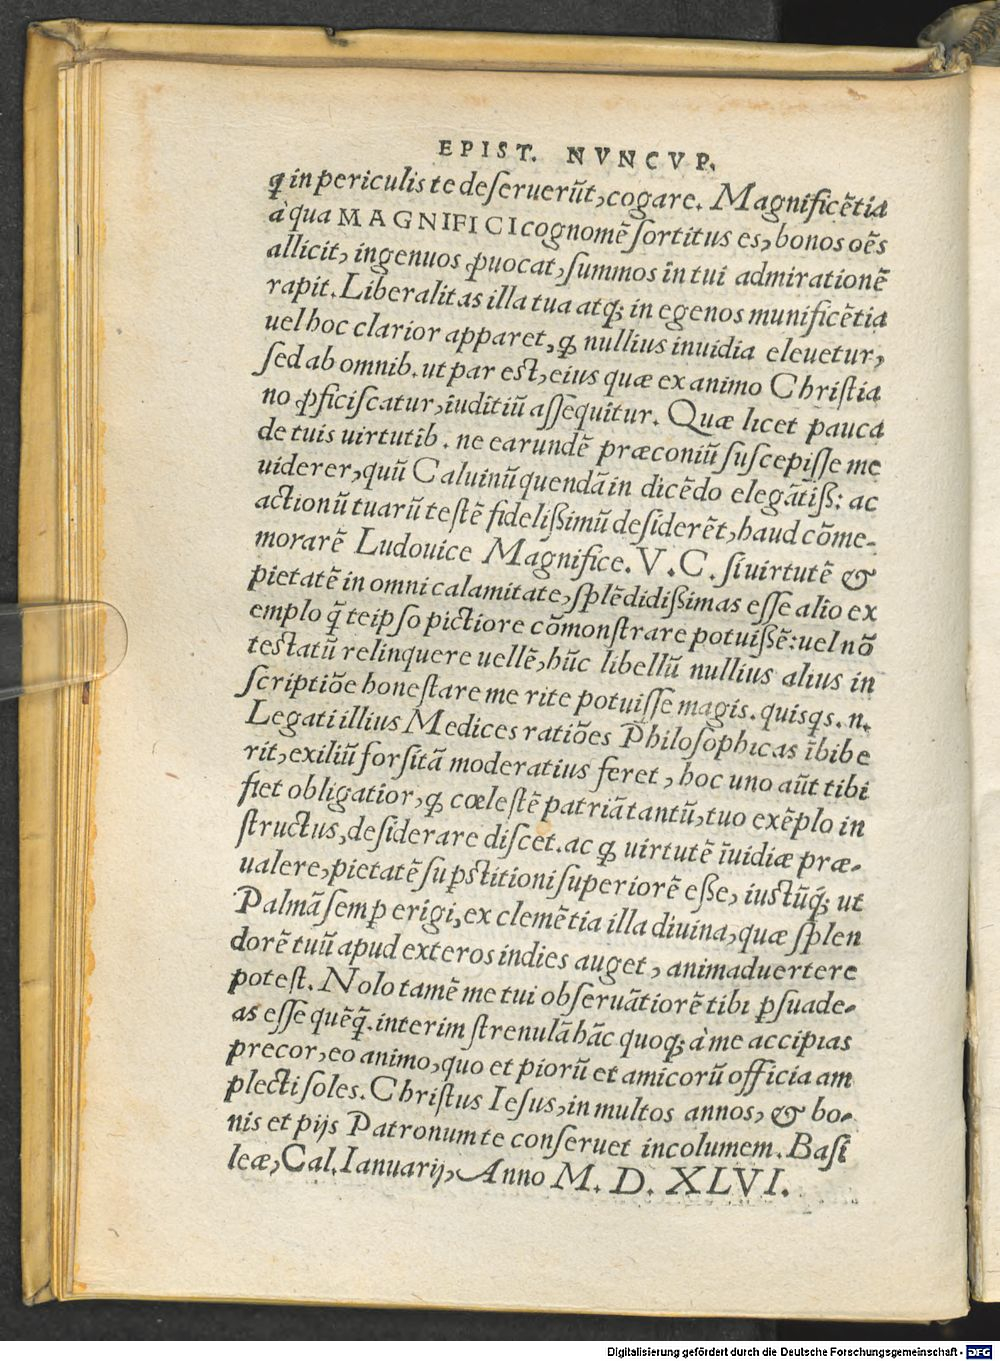 EPIST. NVNCVP.
ꝗ in periculis te deseruerũt, cogare. Magnificẽtia
à qua MAGNIFICI cognomẽ sortitus es, bonos oẽs
allicit, ingenuos ꝓuocat, summos in tui admirationẽ
rapit. Liberalitas illa tua atq; in egenos munificẽtia
uel hoc clarior apparet, ꝙ nullius inuidia eleuetur,
sed ab omnib. ut par est, eius quæ ex animo Christia
no ꝓficiscatur, iuditiũ assequitur. Quæ licet pauca
de tuis uirtutib. ne earundẽ præconiũ suscepisse me
uiderer, quũ Caluinũ quendã in dicẽdo elegãtiß: ac
actionũ tuarũ testẽ fidelißimũ desiderẽt, haud cõme-
morarẽ Ludouice Magnifice. V. C. si uirtutẽ &
pietatẽ in omni calamitate, splẽdidißimas esse alio ex
emplo q̃ teipso pictiore cõmonstrare potuißẽ: uel nõ
testatũ relinquere uellẽ, hũc libellũ nullius alius in
scriptiõe honestare me rite potuisse magis. quisqs. n.
Legati illius Medices ratiões Philosophicas ĩbibe
rit, exiliũ forsitã moderatius feret, hoc uno aũt tibi
fiet obligatior, ꝙ cœlestẽ patriã tantũ, tuo exẽplo in
structus, desiderare discet. ac ꝙ uirtutẽ ĩuidiæ præ-
ualere, pietatẽ suꝑstitioni superiorẽ eße, iustũq́; ut
Palmã semꝑ erigi, ex clemẽtia illa diuina, quæ splen
dorẽ tuũ apud exteros indies auget, animaduertere
potest. Nolo tamẽ me tui obseruãtiorẽ tibi ꝑsuade-
as esse quẽq̃. interim strenulã hãc quoq; à me accipias
precor, eo animo, quo et piorũ et amicorũ officia am
plecti soles. Christus Iesus, in multos annos, & bo-
nis et pijs Patronum te conseruet incolumem. Basi
leæ, Cal. Ianuarij, Anno M. D. XLVI.
Digitalisierung gefördert durch die Deutsche Forschungsgemeinschaft - DFG